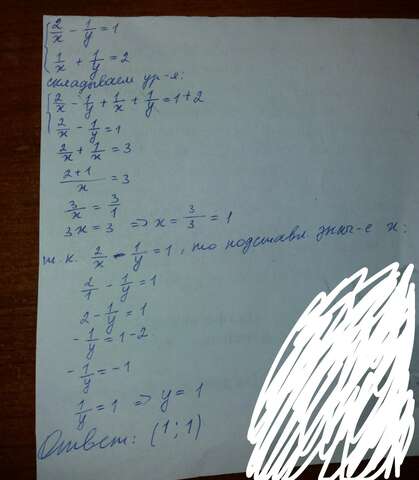 { 2/x - 1/y = 1
1/x + 1/y = 2
складываем ур-я:
{ 2/x - 1/y + 1/x + 1/y = 1+2
2/x - 1/y = 1
2/x + 1/x = 3
2+1/x = 3
3/x = 3/1
3x = 3 => x = 3/3 = 1
т.к. 2/x - 1/y = 1, то подставл. знач-е x:
2/1 - 1/y = 1
2 - 1/y = 1
- 1/y = 1-2
- 1/y = -1
1/y = 1 => y = 1
Ответ: (1;1)